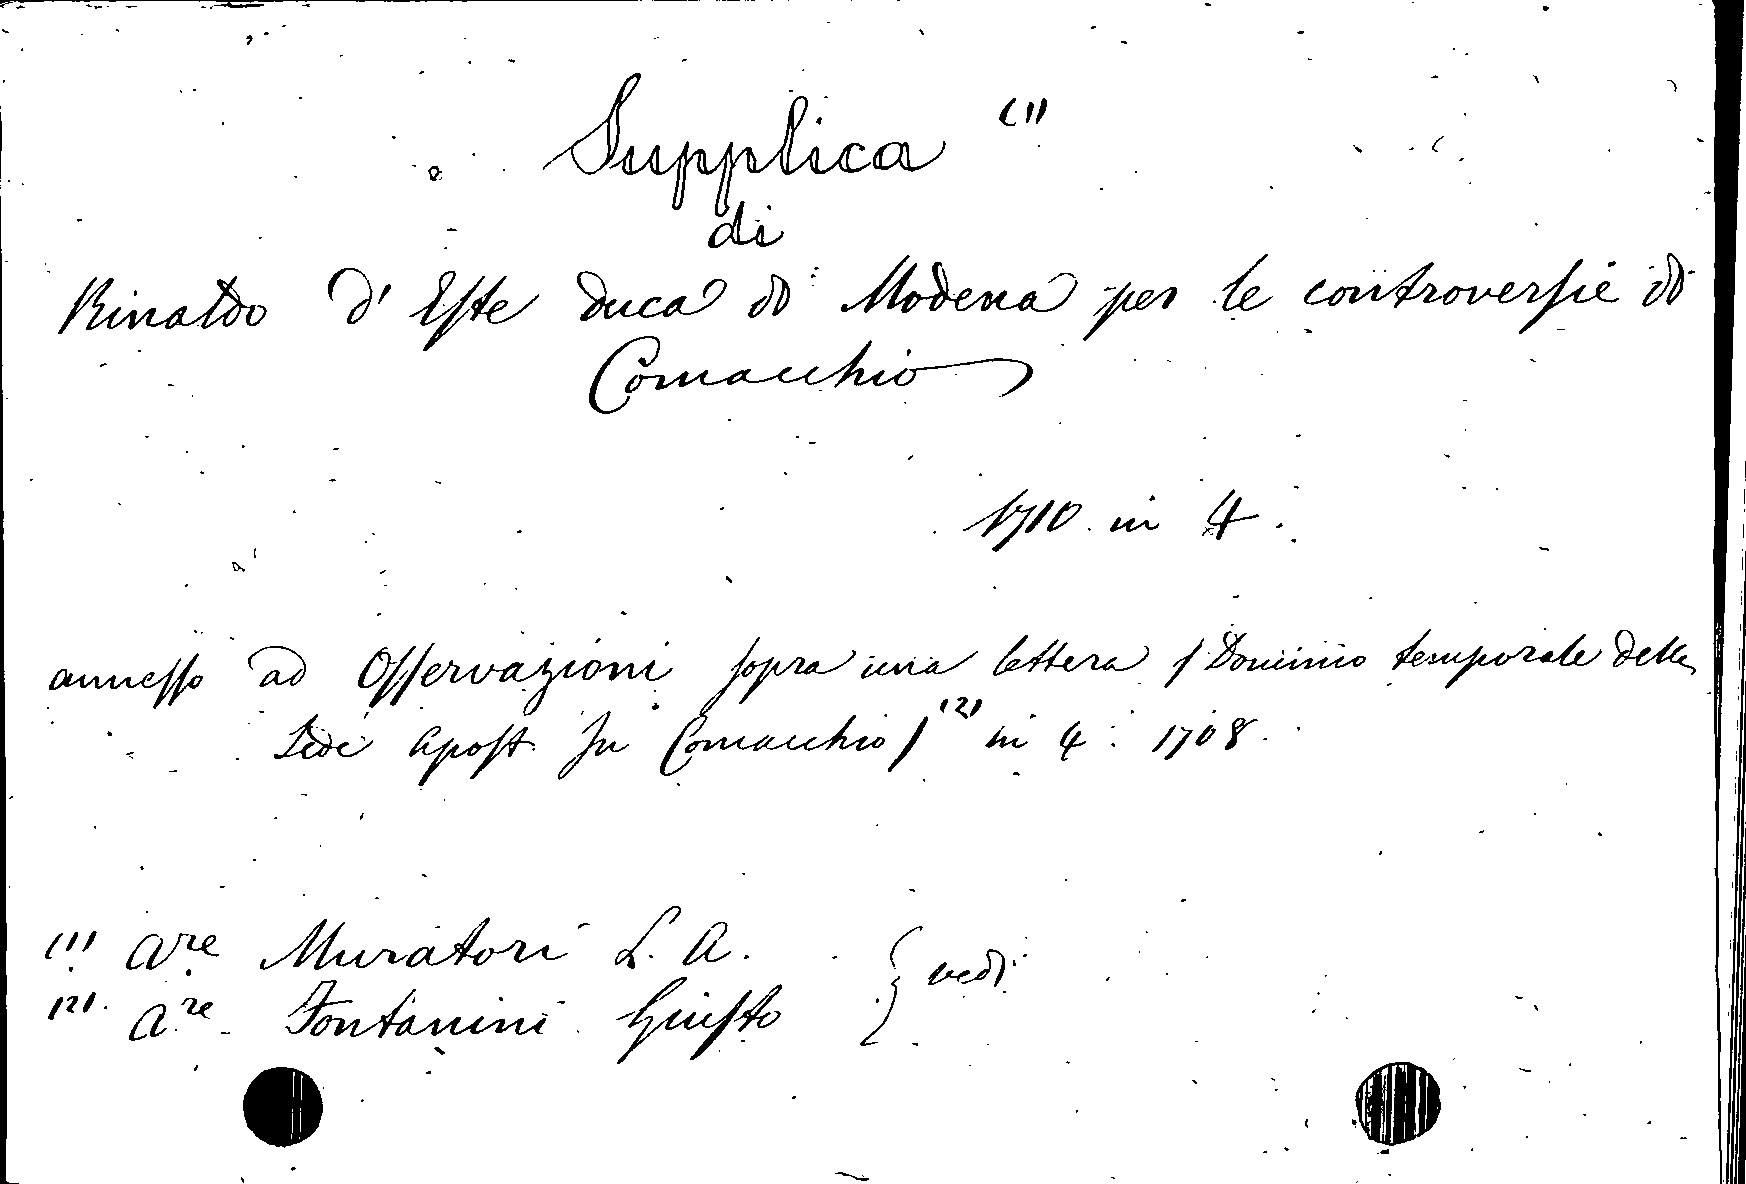 Supplica (1)
di
Rinaldo d' Este duca di Modena per le controversie di
Comacchio
1710 in 4.
annesso ad Osservazioni sopra una lettera / Dominio temporale della
Sede Apost. su Comacchio / (2) in 4. 1708.
(1) Are Muratori L. A. } vedi
(2). Are Fontanini Giusto